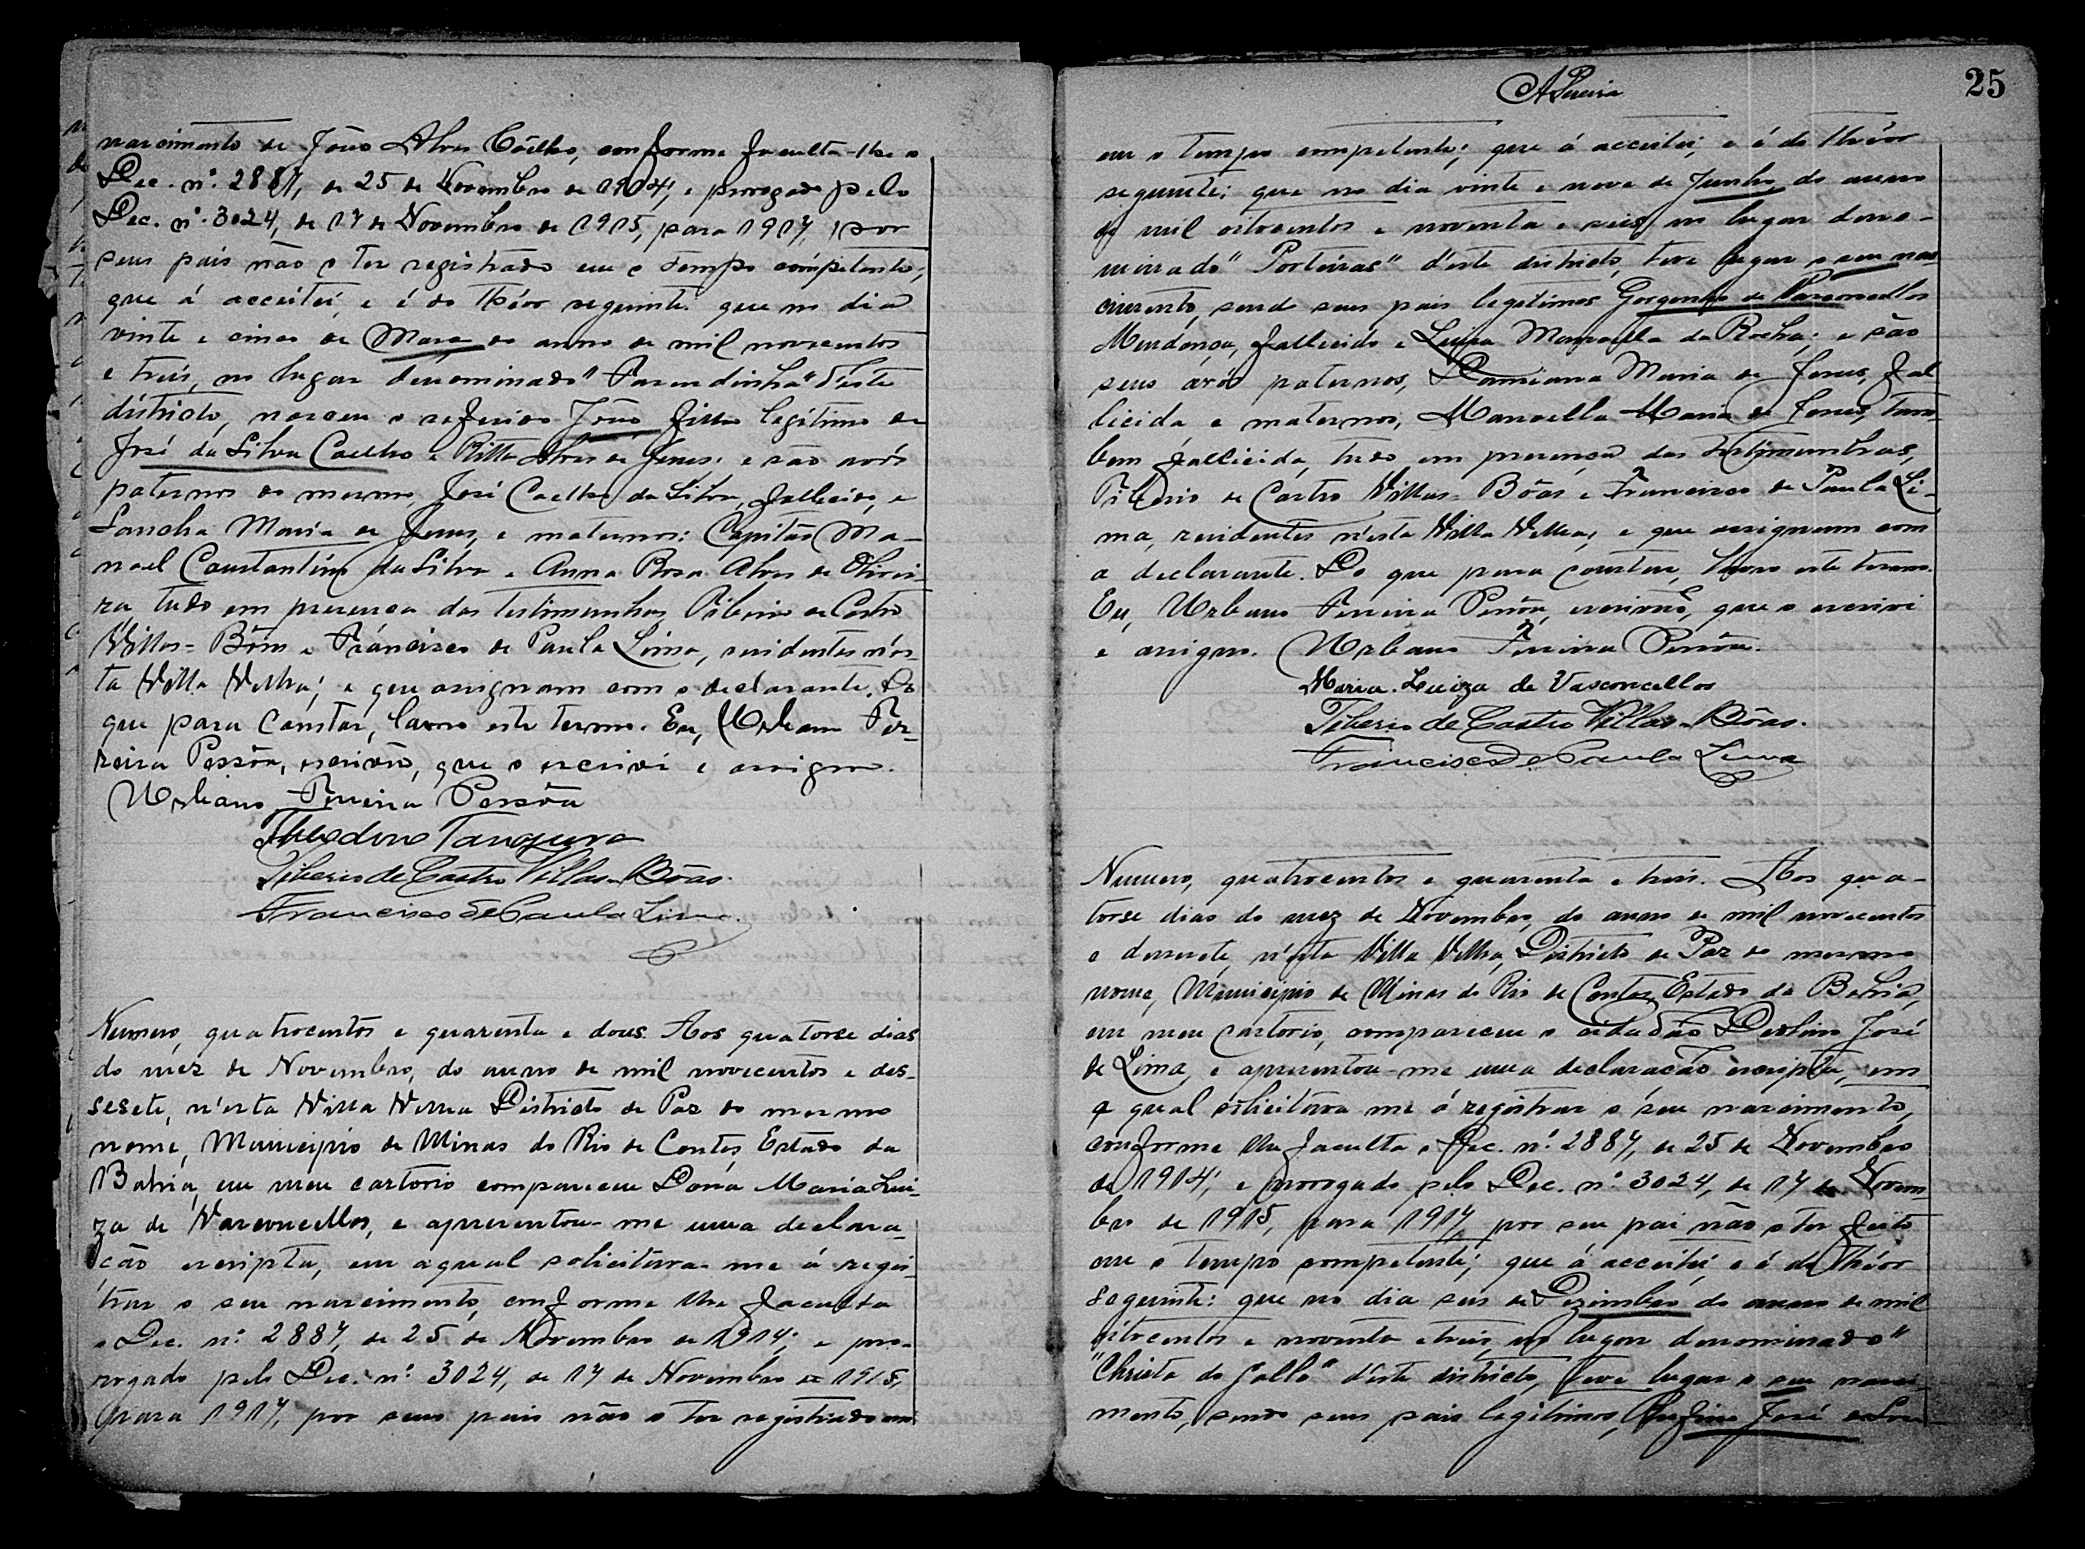 nascimento de João Alves Coêlho, conforme faculta-lhe o
Dec. nº. 2887, de 25 de Novembro de 1914, e prorogado pelo
Dec. nº. 3024, de 17 de Novembro de 1915, para 1917, por
seus pais não o ter registrado em o tempo competente,
que á acceitei, e é do théor seguinte: que no dia
vinte e cinco de Março do anno de mil novecentos
e treis, no lugar denominado "Fasendinha" d'este
districto, nasceu o referido João, filho legitimo de
José da Silva Coelho e Ritta Alves de Jesus: e são avós
paternos do mesmo, José Coelho da Silva, fallecido, e
Sancha Maria de Jesus, e maternos: Capitão Ma-
noel Constantino da Silva e Anna Rosa Alves de Olivei-
ra tudo em presença das testimunhas, Tiberio de Castro
Villas-Bôas e Francisco de Paula Lima, residentes n'es-
ta Villa Velha; e que assignam com o declarante. Do
que para constar, lavro este termo. Eu, Urbano Fer-
reira Pessôa, escrivão, que o escrivi e assigno.
Urbano Ferreira Pessôa
Theodoro Tanajura
Tiberio de Castro Villas-Bôas.
Francisco de Paula Lima.
Numero, quatrocentos e quarenta e dous. Aos quatorse dias
do mez de Novembro, do anno de mil novecentos e des-
sesete, n'esta Villa Velha Districto de Paz do mesmo
nome, Municipio de Minas do Rio de Contas, Estado da
Bahia, em meu cartorio compareceu Dona Maria Lui-
za de Vasconcellos, e apresentou-me uma declara-
ção escripta, em a qual solicitava-me á regis-
trar o seu nascimento, conforme lhe faculta
o Dec. nº: 2887, de 25 de Novembro de 1914; e pro-
rogado pelo Dec. nº: 3024, de 17 de Novembro de 1915,
para 1917, por seus pais não o ter registrado em
APereira
25
em o tempo competente; que á acceitei, e é do théor
seguinte: que no dia vinte e nove de Junho do anno
de mil oitocentos e noventa e seis, no lugar deno-
minado "Porteiras" d'este districto, teve lugar o seu nas-
cimento, sendo seus pais legitimos Gorgonho de Vasconcellos
Mendonça, fallecido e Luiza Manoella da Rocha; e são
seus avós paternos, Damiana Maria de Jesus, fal-
licida e maternos, Manoella Maria de Jesus, tam-
bem fallicida, tudo em presença das testimunhas,
Tiberio de Castro Villas-Bôas e Francisco de Paula Li-
ma, residentes n'esta Villa Velha; e que assignam com
a declarante. Do que para constar, lavro este termo.
Eu, Urbano Ferreira Pessôa, escrivão, que o escrivi
e assigno. Urbano Ferreira Pessôa.
Maria Luiza de Vasconcellos
Tiberio de Castro Villas-Bôas.
Francisco de Paula Lima
Numero, quatrocentos e quarenta e treis. Aos qua-
torse dias do mez de Novembro, do anno de mil novecentos
e dessesete, n'esta Villa Velha, Districto de Paz do mesmo
nome, Municipio de Minas do Rio de Contas, Estado da Bahia,
em meu cartorio, compareceu o cidadão José
de Lima, e apresentou-me uma declaração escripta, em
a qual solicitava me á registrar o seu nascimento,
conforme lhe faculta o Dec. nº: 2887, de 25 de Novembro
de 1914; e prorogado pelo Dec. nº: 3024, de 17 de Novem
bro de 1915, para 1917, por seu pai não o ter feito
em o tempo competente; que á acceitei, e é do théor
seguinte: que no dia seis de Dezimbro do anno de mil
oitocentos e noventa e treis, no lugar denominado "
"Christa do Gallo" d'este districto, teve lugar o seu nasci-
mento, sendo seus pais legitimos, Rufino José de Sou-